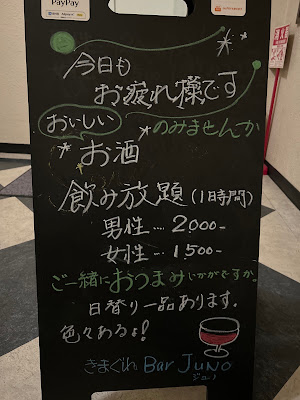 PayPay
今日も
お疲れ様です
おいしい のみませんか
お酒
飲み放題(1時間)
男性‥‥2000-
女性‥‥1500-
ご一緒におつまみいかがですか
日替り一品あります.
色々あるよ!
きまぐれ Bar JUNO
ジュノ